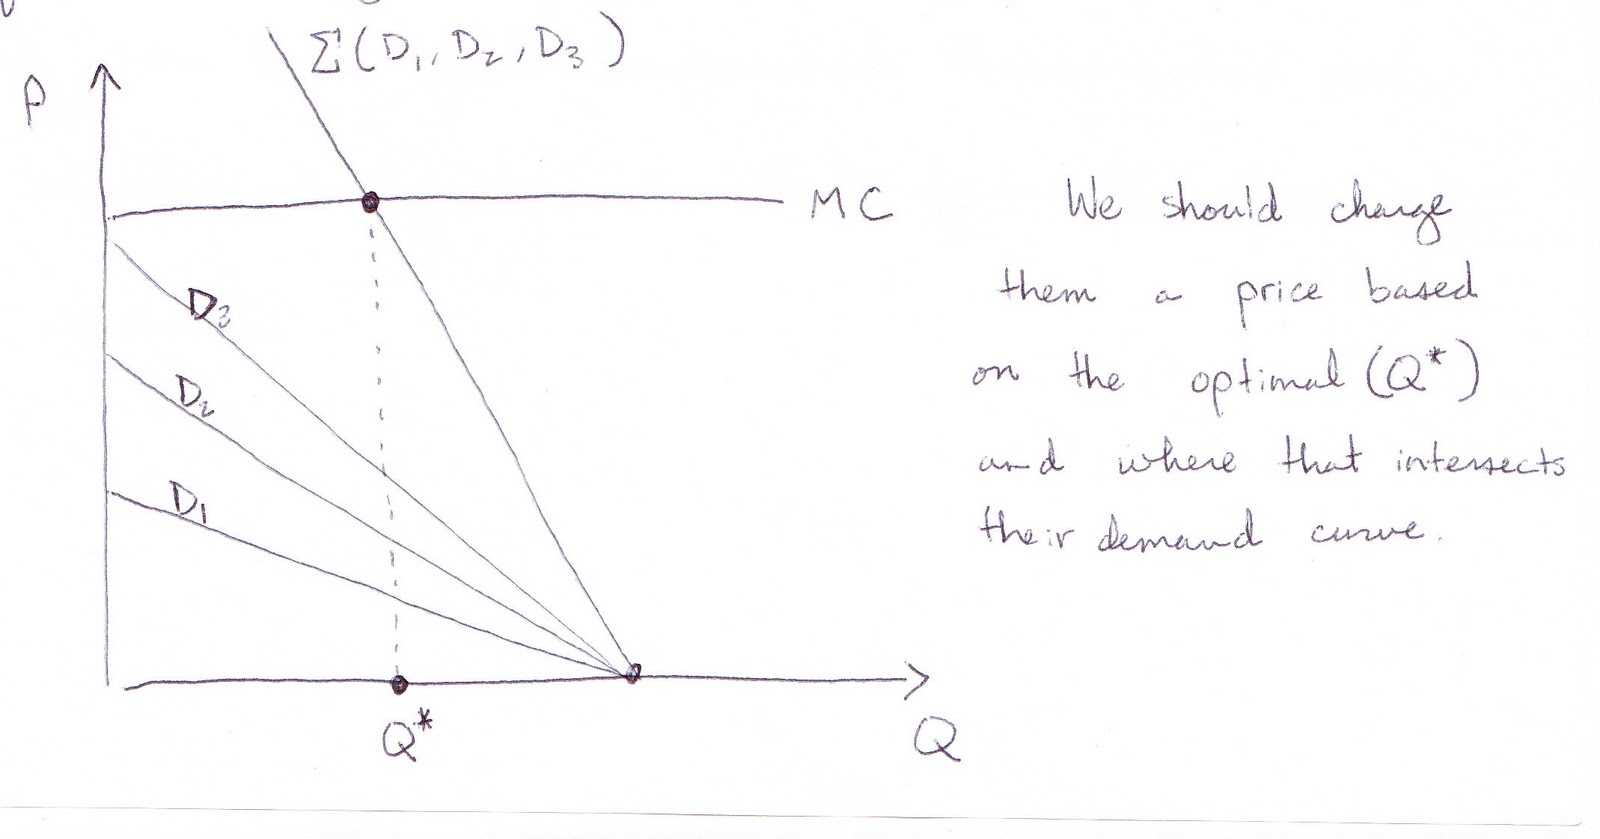 Σ(D₁, D₂, D₃)
P
MC
We should charge
them a price based
on the optimal (Q*)
and where that intersects
their demand curve.
D₃
D₂
D₁
Q*
Q